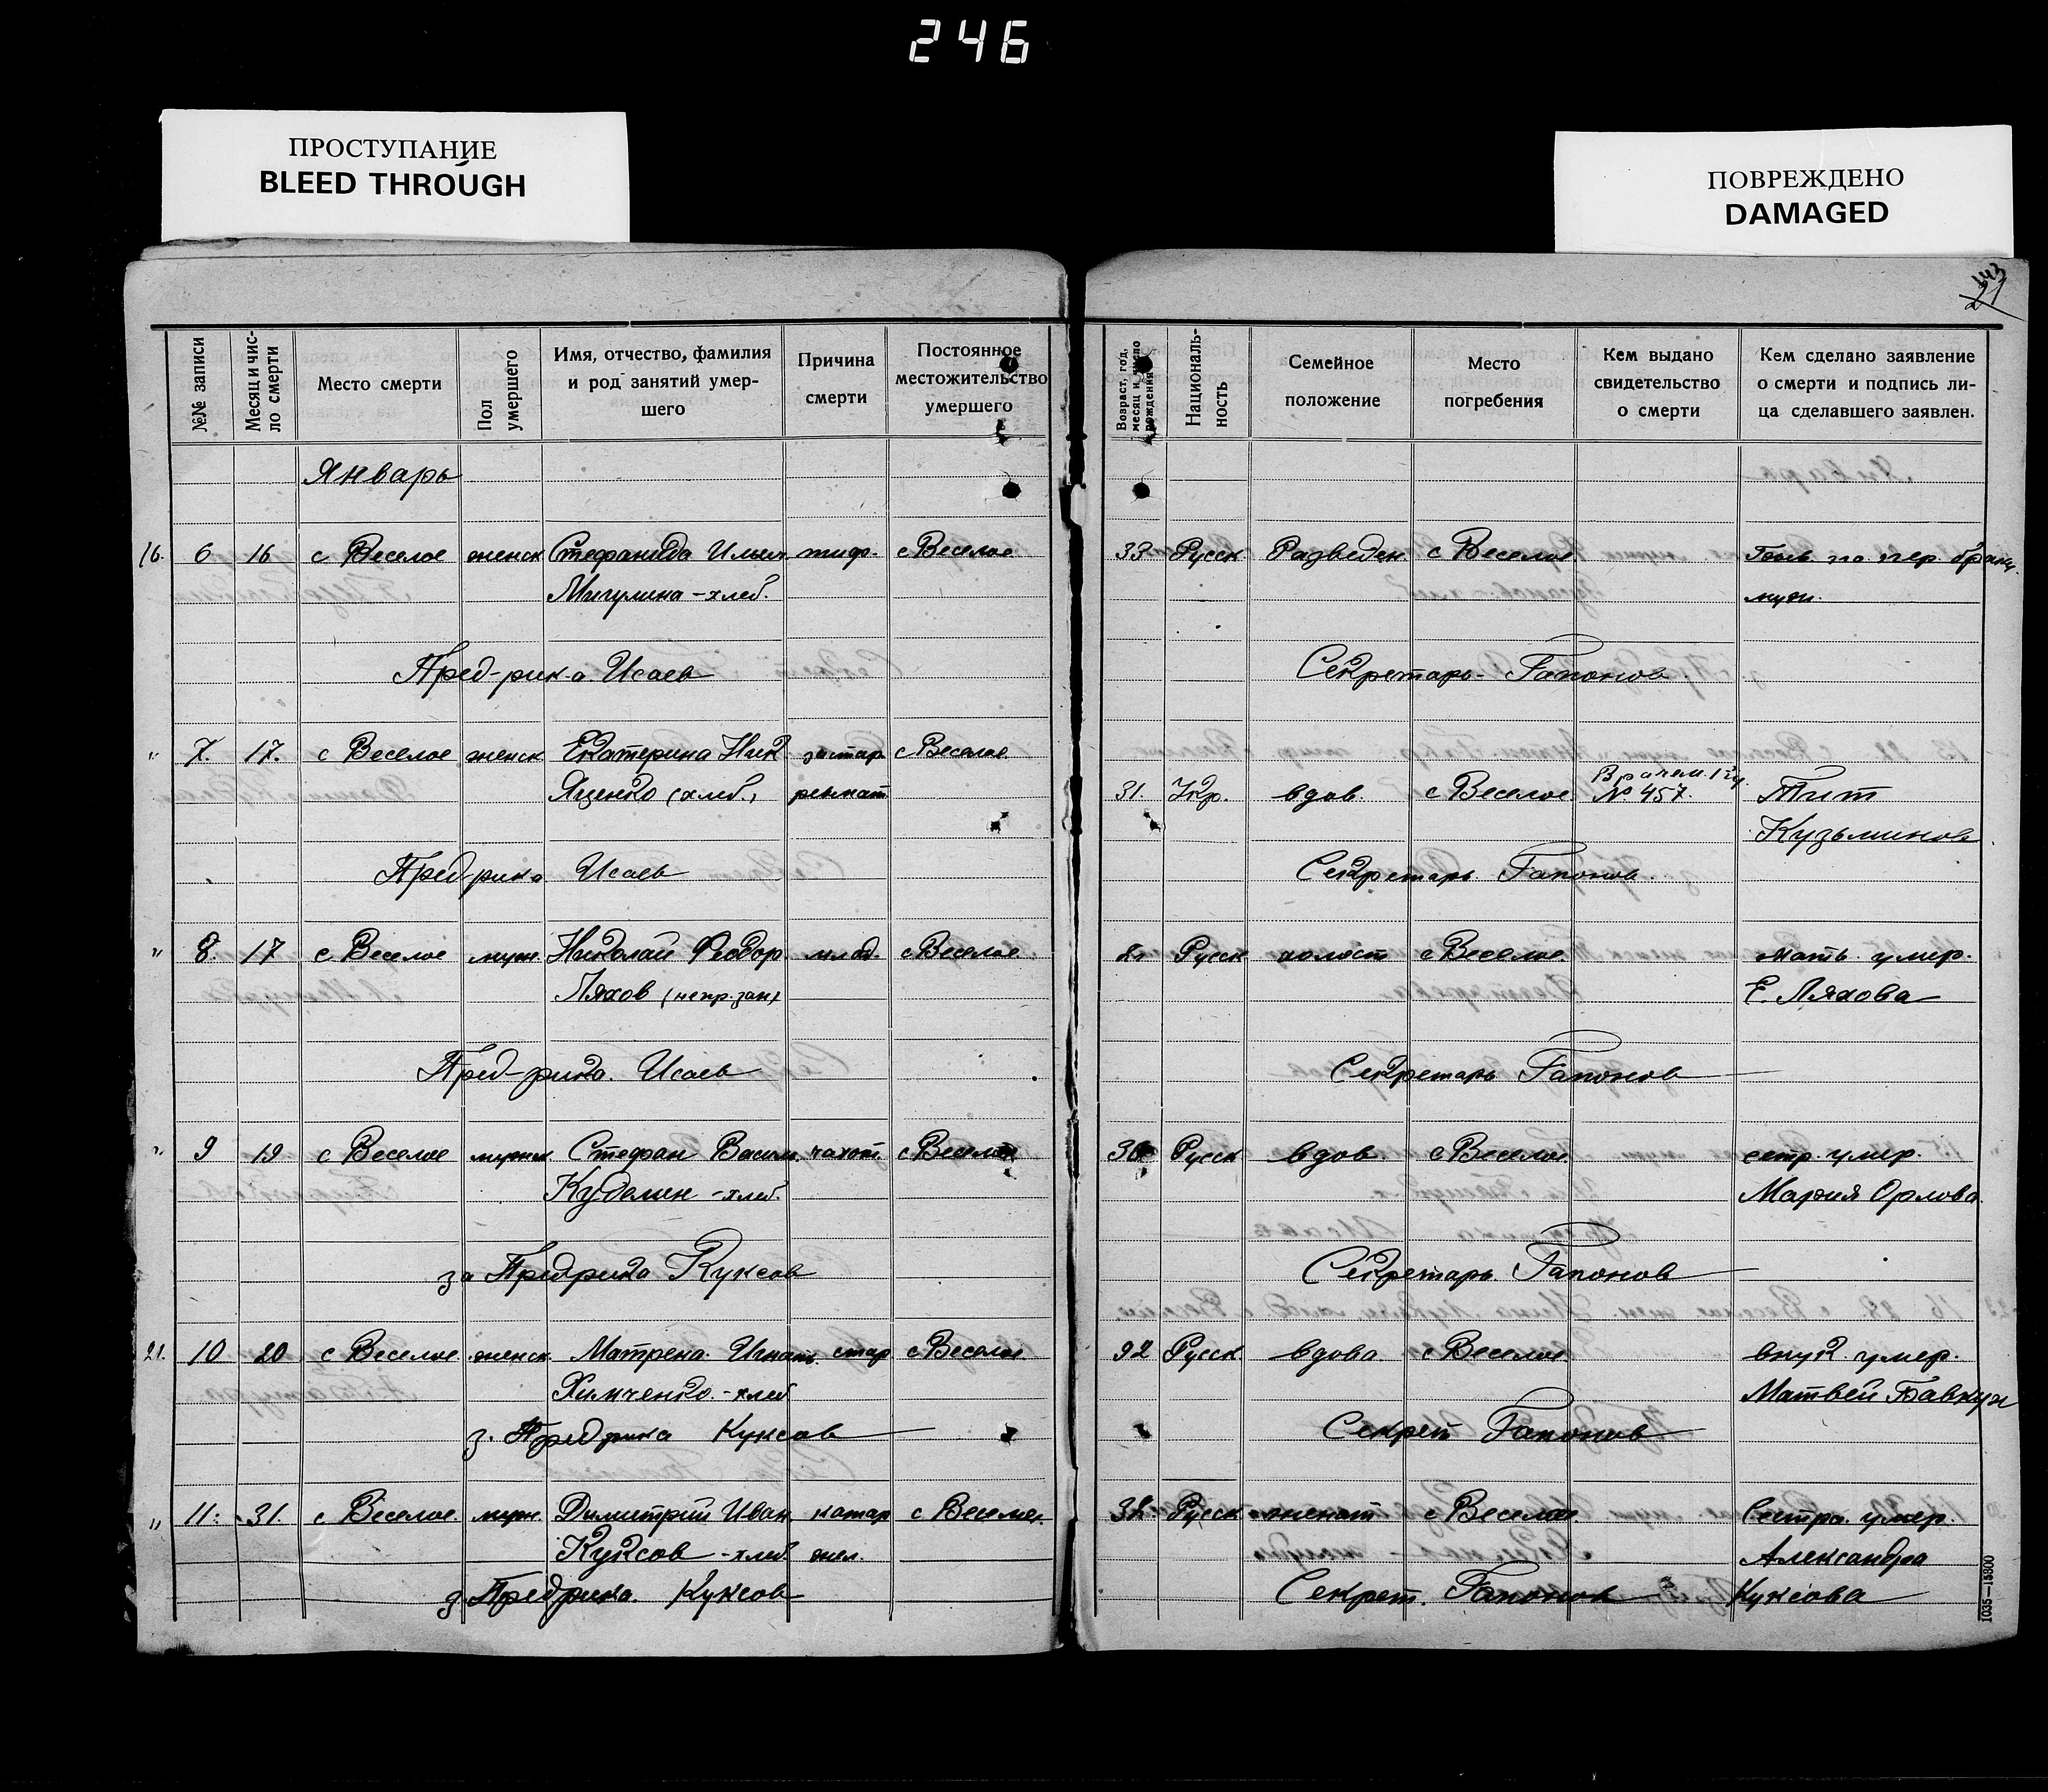 246
ПРОСТУПАНИЕ
BLEED THROUGH
ПОВРЕЖДЕНО
DAMAGED
143
21
№№ записи
Месяц и число смерти
Место смерти
Пол умершего
Имя, отчество, фамилия и род занятий умершего
Причина смерти
Постоянное местожительство умершего
Возраст, год, месяц и число рождения
Националь-ность
Семейное положение
Место погребения
Кем выдано свидетельство о смерти
Кем сделано заявление о смерти и подпись ли-ца сделавшего заявлен.
Январь
16. 6 16 с Веселое женск Стефанида Ильин. тиф. с Веселое 33 Русск Разведен. с Веселое по пер. 
Мигулина - хлеб. муж.
Пред-рик-а Исаев Секретарь Гапонов
" 7. 17. с Веселое женск Екатерина Ник. застар. с Веселое
Яценко (хлеб.) ревмат 31. Укр. вдов. с Веселое Врачем 1 уч. № 457. Тит
Кузьминов
Пред-рика Исаев Секретарь Гапонов
" 8. 17 с Веселое муж. Николай Феодор. млад. с Веселое Русск холост с Веселое мать умер.
Ляхов (непр. зан) Е. Ляхова
Пред-рика. Исаев Секретарь Гапонов
" 9 19 с Веселое мужск Стефан Васил. чахот с Веселое 36 Русск вдов. с Веселое сестр. умер.
- хлеб. Мария Орлова.
за Предрика Куксов Секретарь Гапонов
21. 10 20 с Веселое женск. Матрена Игнат. стар с Веселое 92 Русск вдова с Веселое внук умер.
Химченко. - хлеб Матвей Бавкун
з. Предрика Куксов Секрет Гапонов
" 11. 31. с Веселое муж. Димитрий Иван. катар с Веселое 38. Русск женат с Веселое Сестра умер.
Куксов - хлеб. жел. Александра
з. Предрика. Куксов Секрет. Гапонов Куксова
1035—15300